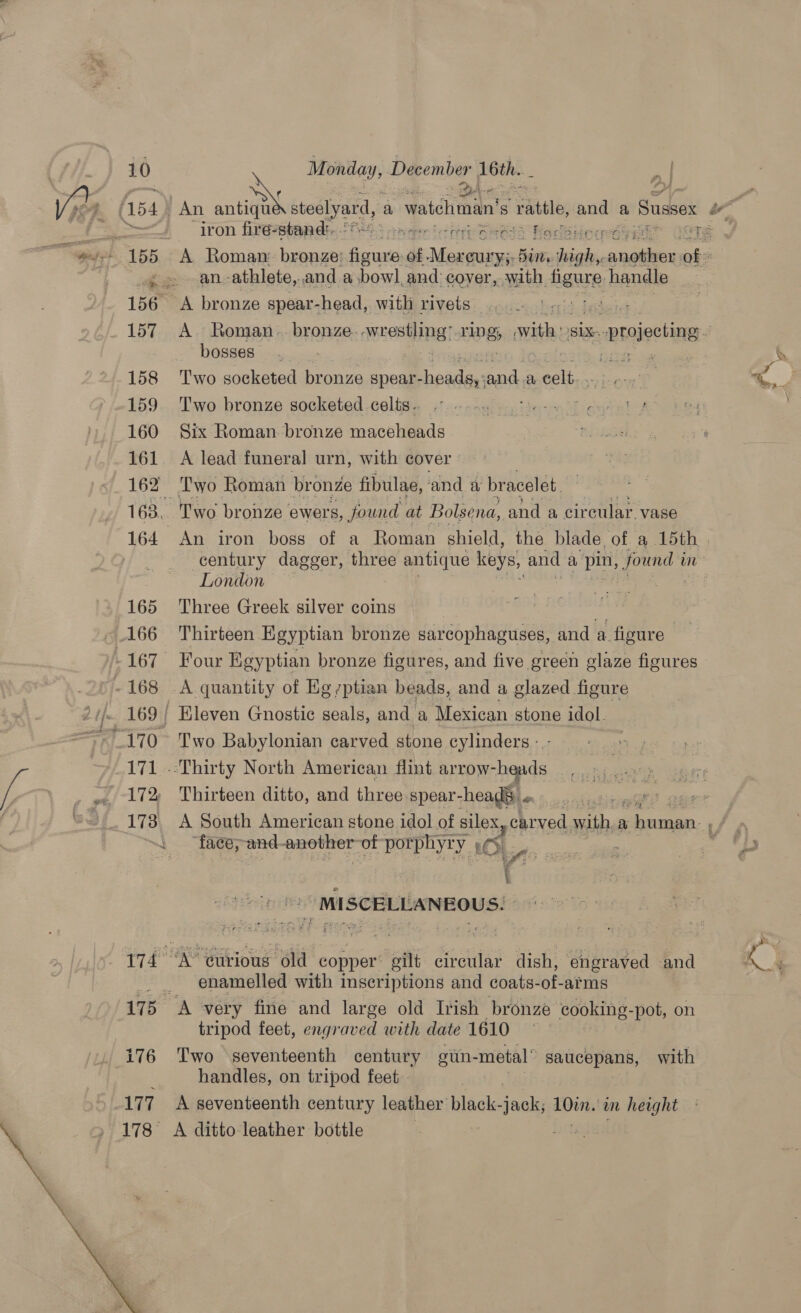 10 Monday, December 16th.
154 An antique steelyard, a watchman's rattle, and a Sussex
iron fire-stand
155 A Roman bronze figure of Mercury, 5in. high, another of
an athlete, and a bowl and cover, with figure handle
156 A bronze spear-head, with rivets
157 A Roman bronze wrestling ring, with six projecting
bosses
158 Two socketed bronze spear-heads, and a celt
159 Two bronze socketed celts
160 Six Roman bronze maceheads
161 A lead funeral urn, with cover
162 Two Roman bronze fibulae, and a bracelet
163 Two bronze ewers, found at Bolsena, and a circular vase
164 An iron boss of a Roman shield, the blade of a 15th
century dagger, three antique keys, and a pin, found in
London
165 Three Greek silver coins
166 Thirteen Egyptian bronze sarcophaguses, and a figure
167 Four Egyptian bronze figures, and five green glaze figures
168 A quantity of Egyptian beads, and a glazed figure
169 Eleven Gnostic seals, and a Mexican stone idol
170 Two Babylonian carved stone cylinders
171 Thirty North American flint arrow-heads
172 Thirteen ditto, and three spear-heads
173 A South American stone idol of silex, carved with a human
face, and another of porphyry
MISCELLANEOUS.
174 A curious old copper gilt circular dish, engraved and
enamelled with inscriptions and coats-of-arms
175 A very fine and large old Irish bronze cooking-pot, on
tripod feet, engraved with date 1610
176 Two seventeenth century gun-metal saucepans, with
handles, on tripod feet
177 A seventeenth century leather black-jack, 10in. in height
178 A ditto leather bottle